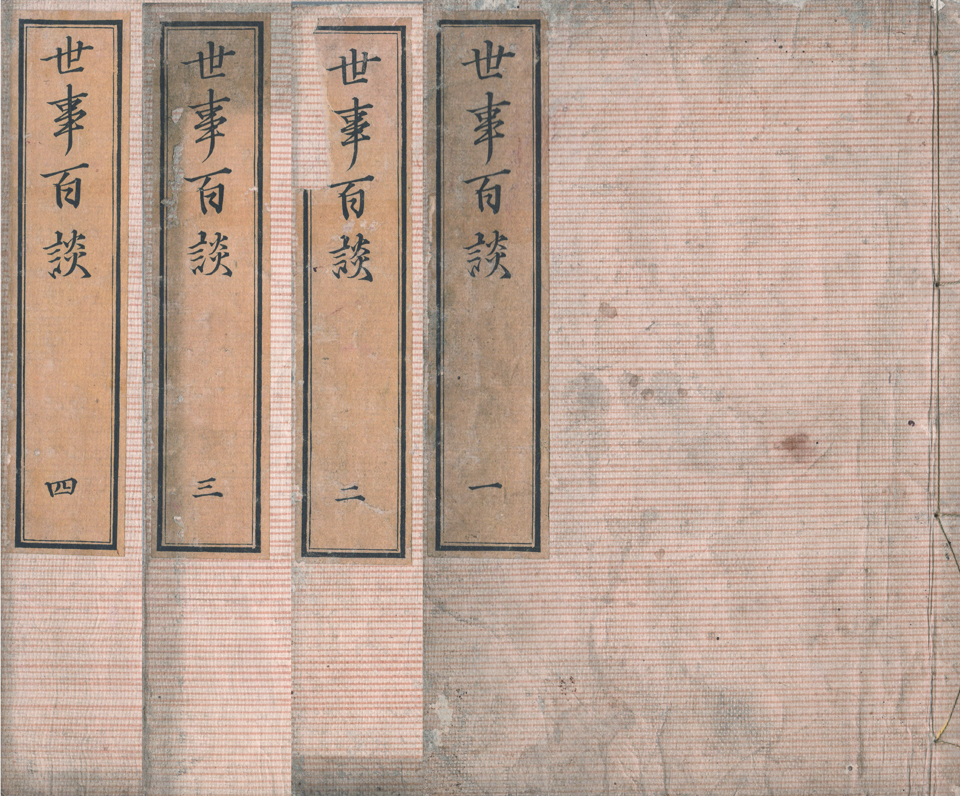 世事百談 一
世事百談 二
世事百談 三
世事百談 四